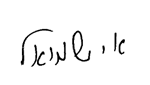 א י. שמואל